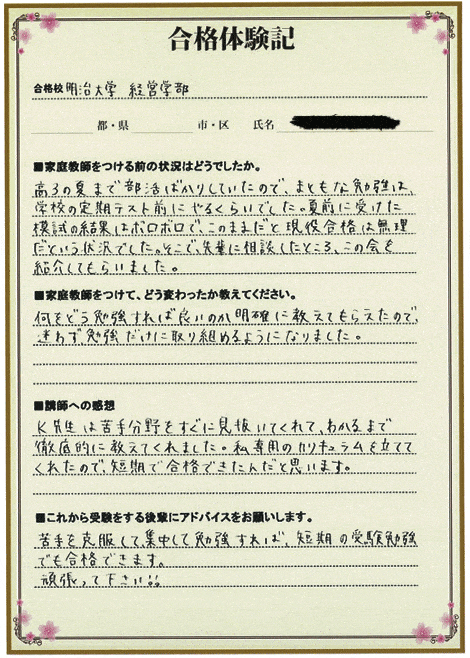 合格体験記
合格校 明治大学 経営学部
都・県 市・区 氏名
■家庭教師をつける前の状況はどうでしたか。
高3の夏まで部活ばかりしていたので、まともな勉強は、
学校の定期テスト前にやるくらいでした。夏前に受けた
模試の結果はボロボロで、このままだと現役合格は無理
だという状況でした。そこで、先輩に相談したところ、この会を
紹介してもらいました。
■家庭教師をつけて、どう変わったか教えてください。
何をどう勉強すれば良いのか明確に教えてもらえたので、
迷わず勉強だけに取り組めるようになりました。
■講師への感想
K先生は苦手分野をすぐに見抜いてくれて、わかるまで
徹底的に教えてくれました。私専用のカリキュラムを立てて
くれたので、短期で合格できたんだと思います。
■これから受験をする後輩にアドバイスをお願いします。
苦手を克服して集中して勉強すれば、短期の受験勉強
でも合格できます。
頑張って下さい。。